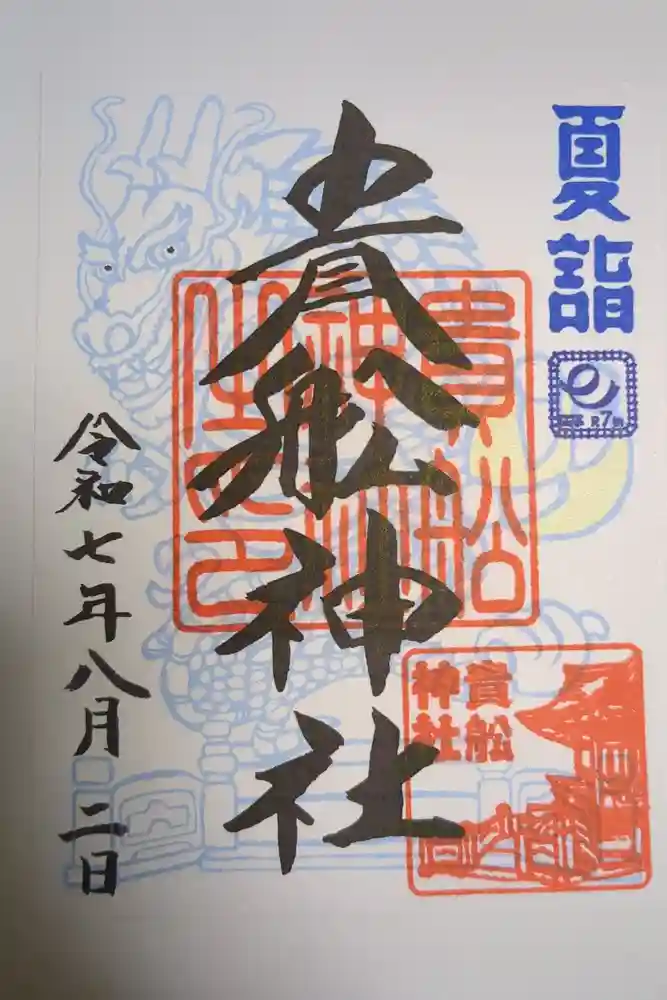 夏詣
R7
貴船神社
貴船
神社
之印
貴船
神社
令和七年八月二日